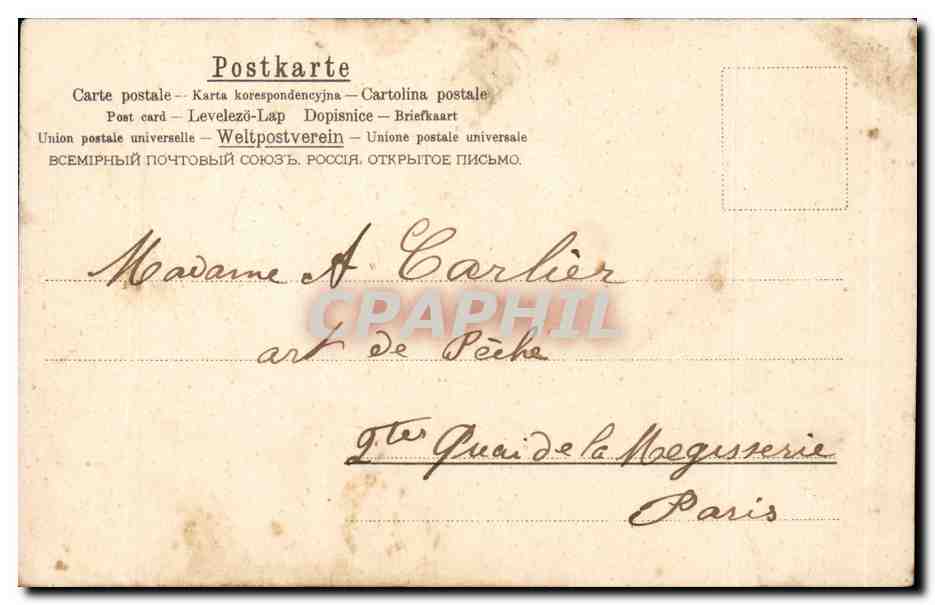 Postkarte
Carte postale — Karta korespondencyjna — Cartolina postale
Post card — Levelezö-Lap Dopisnice — Briefkaart
Union postale universelle — Weltpostverein — Unione postale universale
ВСЕМІРНЫЙ ПОЧТОВЫЙ СОЮЗЪ. РОССІЯ. ОТКРЫТОЕ ПИСЬМО.
Madame A Carlier
CPAPHIL
art de Pêche
Quai de la Megisserie
Paris